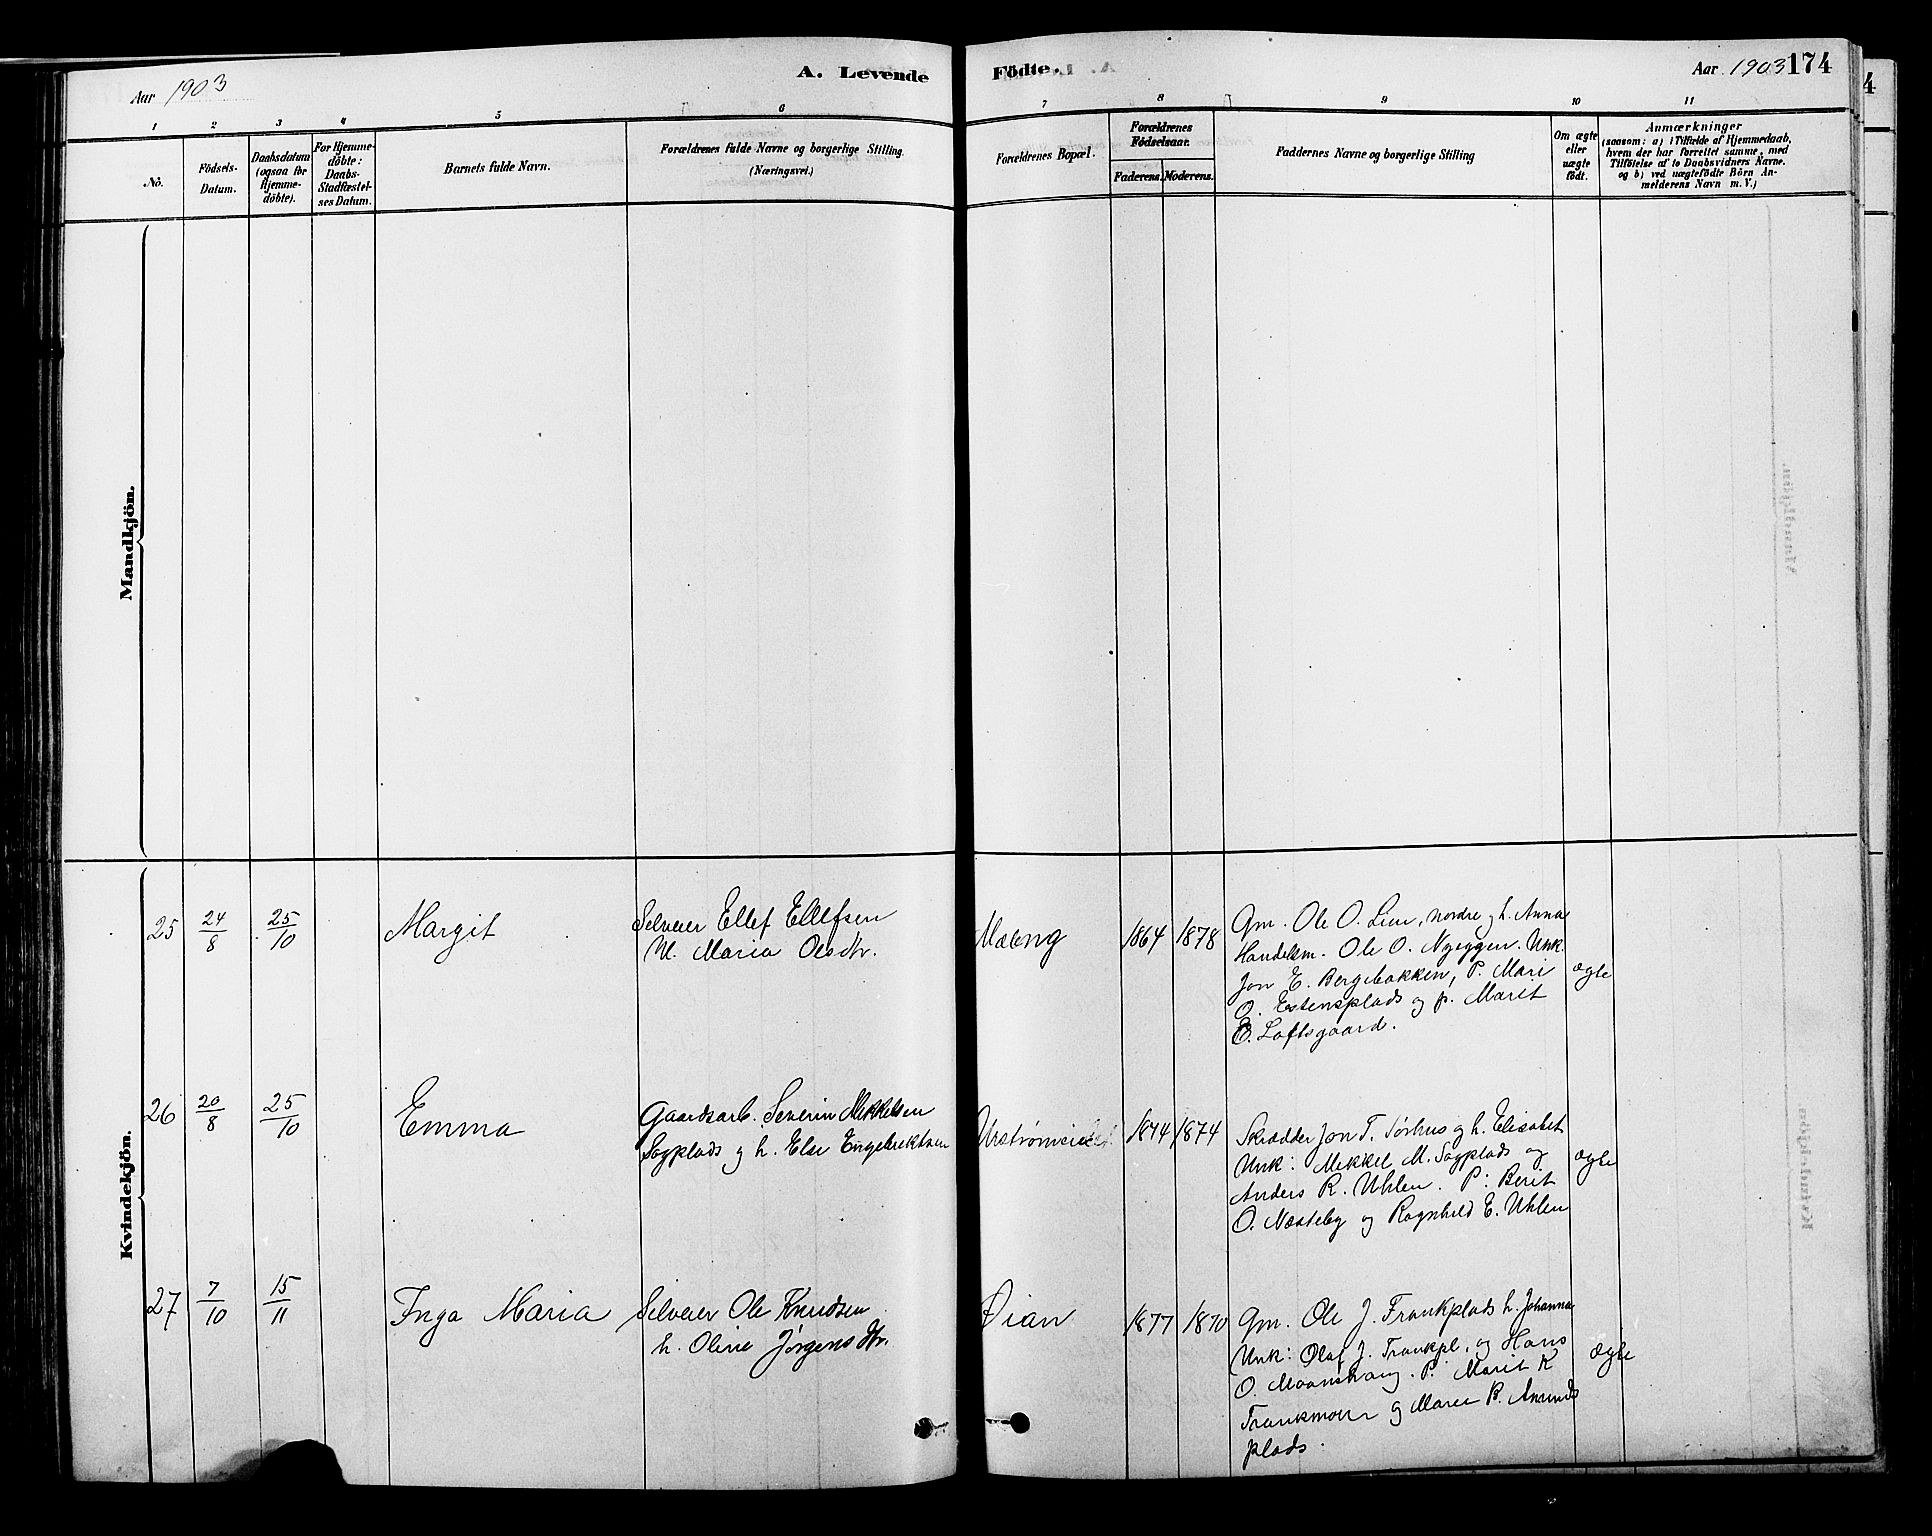 Aar 1903
A. Levende
Födte.
Aar 1903 174
1 2 3 4 5 6 7 8 9 10 11
No.
Födsels-
Datum.
Daabsdatum
(ogsaa for
Hjemme-
döbte).
For Hjemme-
döbte:
Daabs-
Stadfæstel-
ses Datum.
Barnets fulde Navn.
Forældrenes fulde Navne og borgerlige Stilling.
(Næringsvei.)
Forældrenes Bopæl.
Forældrenes
Födselsaar.
Faderens. Moderens.
Faddernes Navne og borgerlige Stilling
Om ægte
eller
uægte
födt.
Anmærkninger
(saasom: a) i Tilfælde af Hjemmedaab,
hvem der har forrettet samme, med
Tilföielse af to Daabsvidners Navne.
og b) ved uægtefödte Börn An-
melderens Navn m. V.)
Mandkjön.
Kvindekjön.
25 24/8 25/10 Margit
Selveier Ellef Ellefsen
H. Maria Olsdtr.
1864 1878
Gm. Ole O. Lien, nordre og h. Anna
Handelsm. Ole O. Nyeggen. Unk.
Jon E. Bergebakken, P. Mari
O. Estensplads og p. Marit
E. Loftsgaard.
ægte
26 20/8 25/10 Emma
Gaardsarb. Severin Mikkelsen
Sagplads og h. Else Engebrektsen
1874 1874
Skrædder Jon T. Sørhus og h. Elisabet
Unk: Mikkel M. Sagplads og
Anders R. Uhlen. P: Berit
O. Næsteby og Ragnhild E. Uhlen
ægte
27 7/10 15/11 Inga Maria
Selveier Ole Knudsen
h. Oline Jörgensdtr.
Øian
1877 1870
Gm. Ole J. Frankplads h. Johanna
Unk: Olaf J. Trankpl. og Hans
O. P: Marit K
og Maren B. Amunds
plads.
ægte